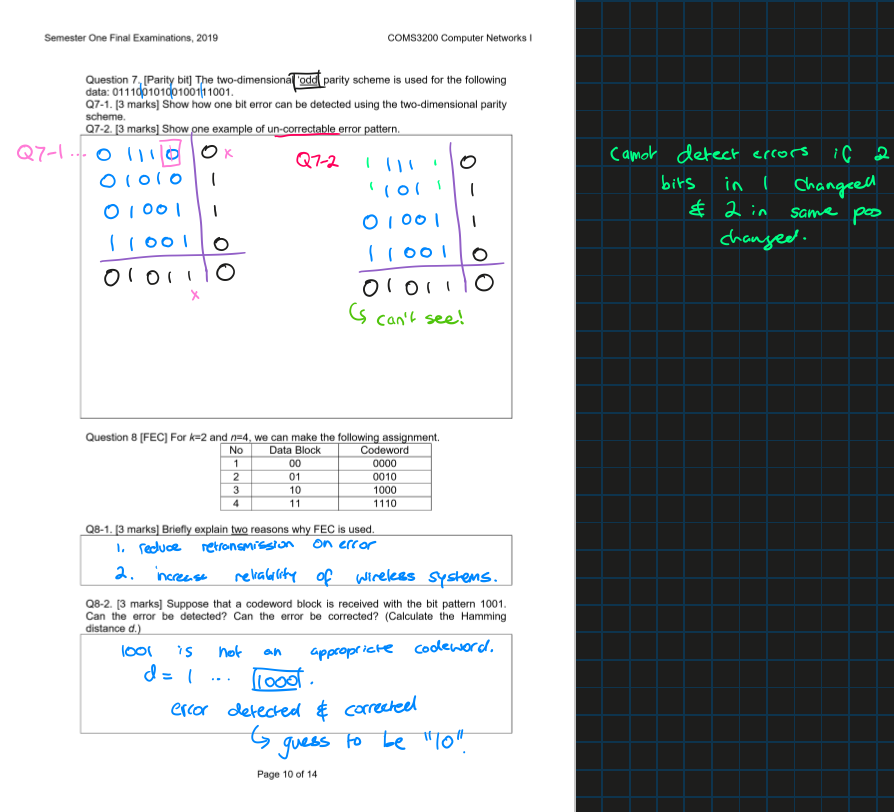 Semester One Final Examinations, 2019 COMS3200 Computer Networks I
Question 7. [Parity bit] The two-dimensional 'odd' parity scheme is used for the following
data: 01110010100100111001.
Q7-1. [3 marks] Show how one bit error can be detected using the two-dimensional parity
scheme.
Q7-2. [3 marks] Show one example of un-correctable error pattern.
Q7-1 ... 0 1 1 1 0 0 x
0 1 0 1 0 1
0 1 0 0 1 1
1 1 0 0 1 0
0 1 0 1 1 0
x
Q7-2 1 1 1 1 1 0
1 1 0 1 1 1
0 1 0 0 1 1
1 1 0 0 1 0
0 1 0 1 1 0
↳ can't see!
Cannot detect errors if 2
bits in 1 changeed
& 2 in same pos
changed.
Question 8 [FEC] For k=2 and n=4, we can make the following assignment.
No Data Block Codeword
1 00 0000
2 01 0010
3 10 1000
4 11 1110
Q8-1. [3 marks] Briefly explain two reasons why FEC is used.
1. reduce retransmission on error
2. increase reliability of wireless systems.
Q8-2. [3 marks] Suppose that a codeword block is received with the bit pattern 1001.
Can the error be detected? Can the error be corrected? (Calculate the Hamming
distance d.)
1001 is not an appropriate codeword.
d = 1 ... 1000.
error detected & corrected
↳ guess to be "10".
Page 10 of 14